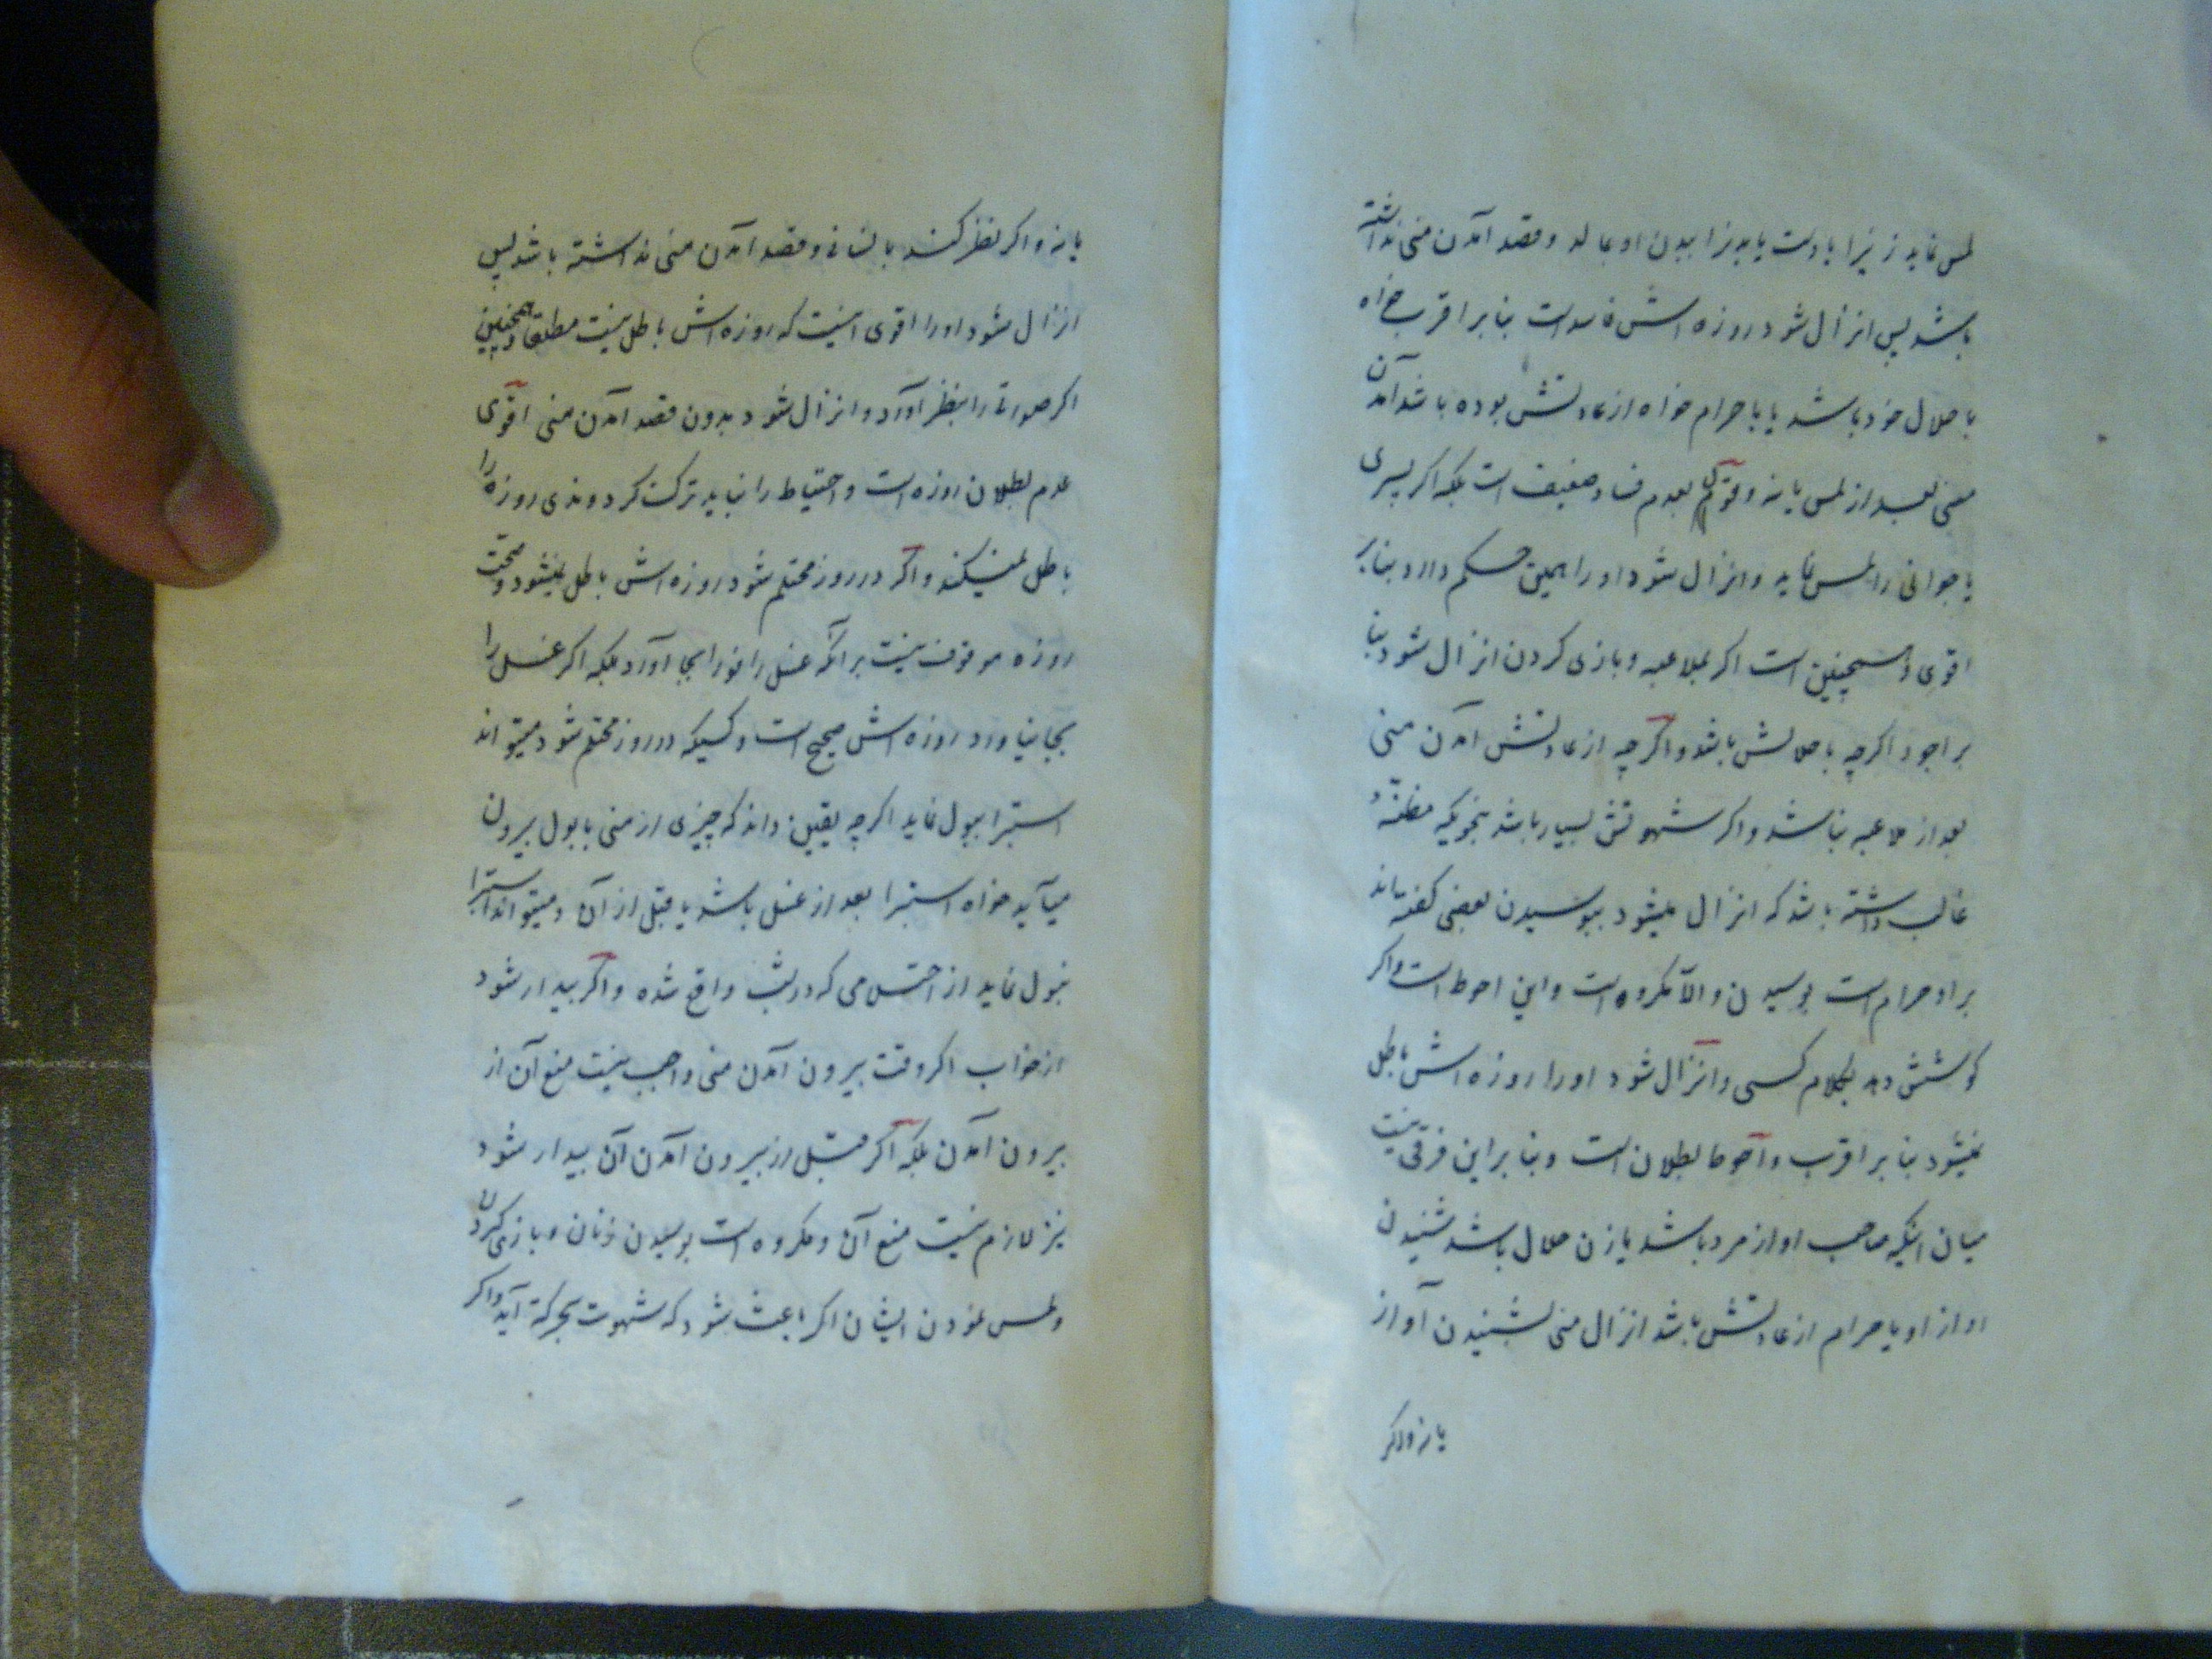 لمس نماید زنیرا بادست یا بدنرا ببدن او بمالد و قصد آمدن منی نداشته
باشد پس انزال شود روزه اش فاسد است بنا بر اقرب خواه
با حلال خود باشد یا با حرام خواه از عادتش بوده باشد آمدن
منی بعد از لمس یا نه و قول بعدم فساد ضعیف است بلکه اگر پسری
یا جوانی را لمس نماید و انزال شود او را همین حکم دارد بنا بر
اقوی و همچنین است اگر بملاعبه و بازی کردن انزال شود بنا
بر اجود اگرچه با حلالش باشد و اگرچه از عادتش آمدن منی
بعد از ملاعبه نباشد و اگر شهوتش بسیار باشد بنحویکه مظنه
غالب داشته باشد که انزال میشود ببوسیدن بعضی گفته اند
بر او حرام است بوسیدن و الا مکروه است و این احوط است و اگر
گوشش دهد بکلام کسی و انزال شود او را روزه اش باطل
نمیشود بنا بر اقرب و احوط بطلان است و بنا بر این فرقی نیست
میان اینکه صاحب اواز مرد باشد یا زن حلال باشد شنیدن
اواز او یا حرام از عادتش باشد انزال منی بشنیدن آواز
یا نه و اگر
یا نه و اگر نظر کند بانسانی و قصد آمدن منی نداشته باشد پس
انزال شود او را اقوی اینست که روزه اش باطل نیست مطلقا و همچنین
اگر صورتی را بنظر آورد و انزال شود بدون قصد آمدن منی اقوی
عدم بطلان روزه است و احتیاط را نباید ترک کرد و مذی روزه را
باطل نمیکند و اگر در روز محتلم شود روزه اش باطل نمیشود و صحت
روزه موقوف نیست بر آنکه غسل را فورا بجا آورد بلکه اگر غسل را
بجا نیاورد روزه اش صحیح است و کسیکه در روز محتلم شود میتواند
استبرا ببول نماید اگرچه یقین داند که چیزی از منی با بول بیرون
میآید خواه استبرا بعد از غسل باشد یا قبل از آن و میتواند استبرا
ببول نماید از احتلامی که در شب واقع شده و اگر بیدار شود
از خواب اگر وقت بیرون آمدن منی واجب نیست منع آن از
بیرون آمدن بلکه اگر قبل از بیرون آمدن آن بیدار شود
نیز لازم نیست منع آن و مکروه است بوسیدن زنان و بازی کردن
و لمس نمودن ایشان اگر باعث شود که شهوت بحرکة آید و اگر